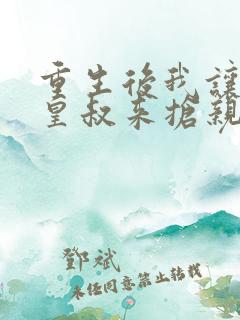 重生後我讓
皇叔來搶親
鄧斌
未經同意禁止轉載